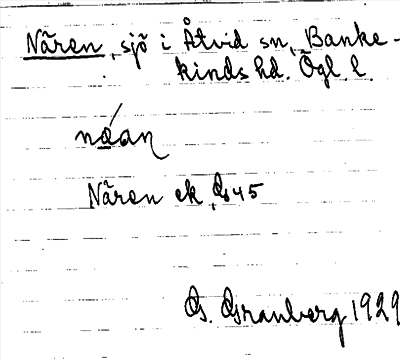 Nären, sjö i Åtvid sn, Banke-
kinds hd. Ögl. l.
Nären ek
G. Granberg 1929